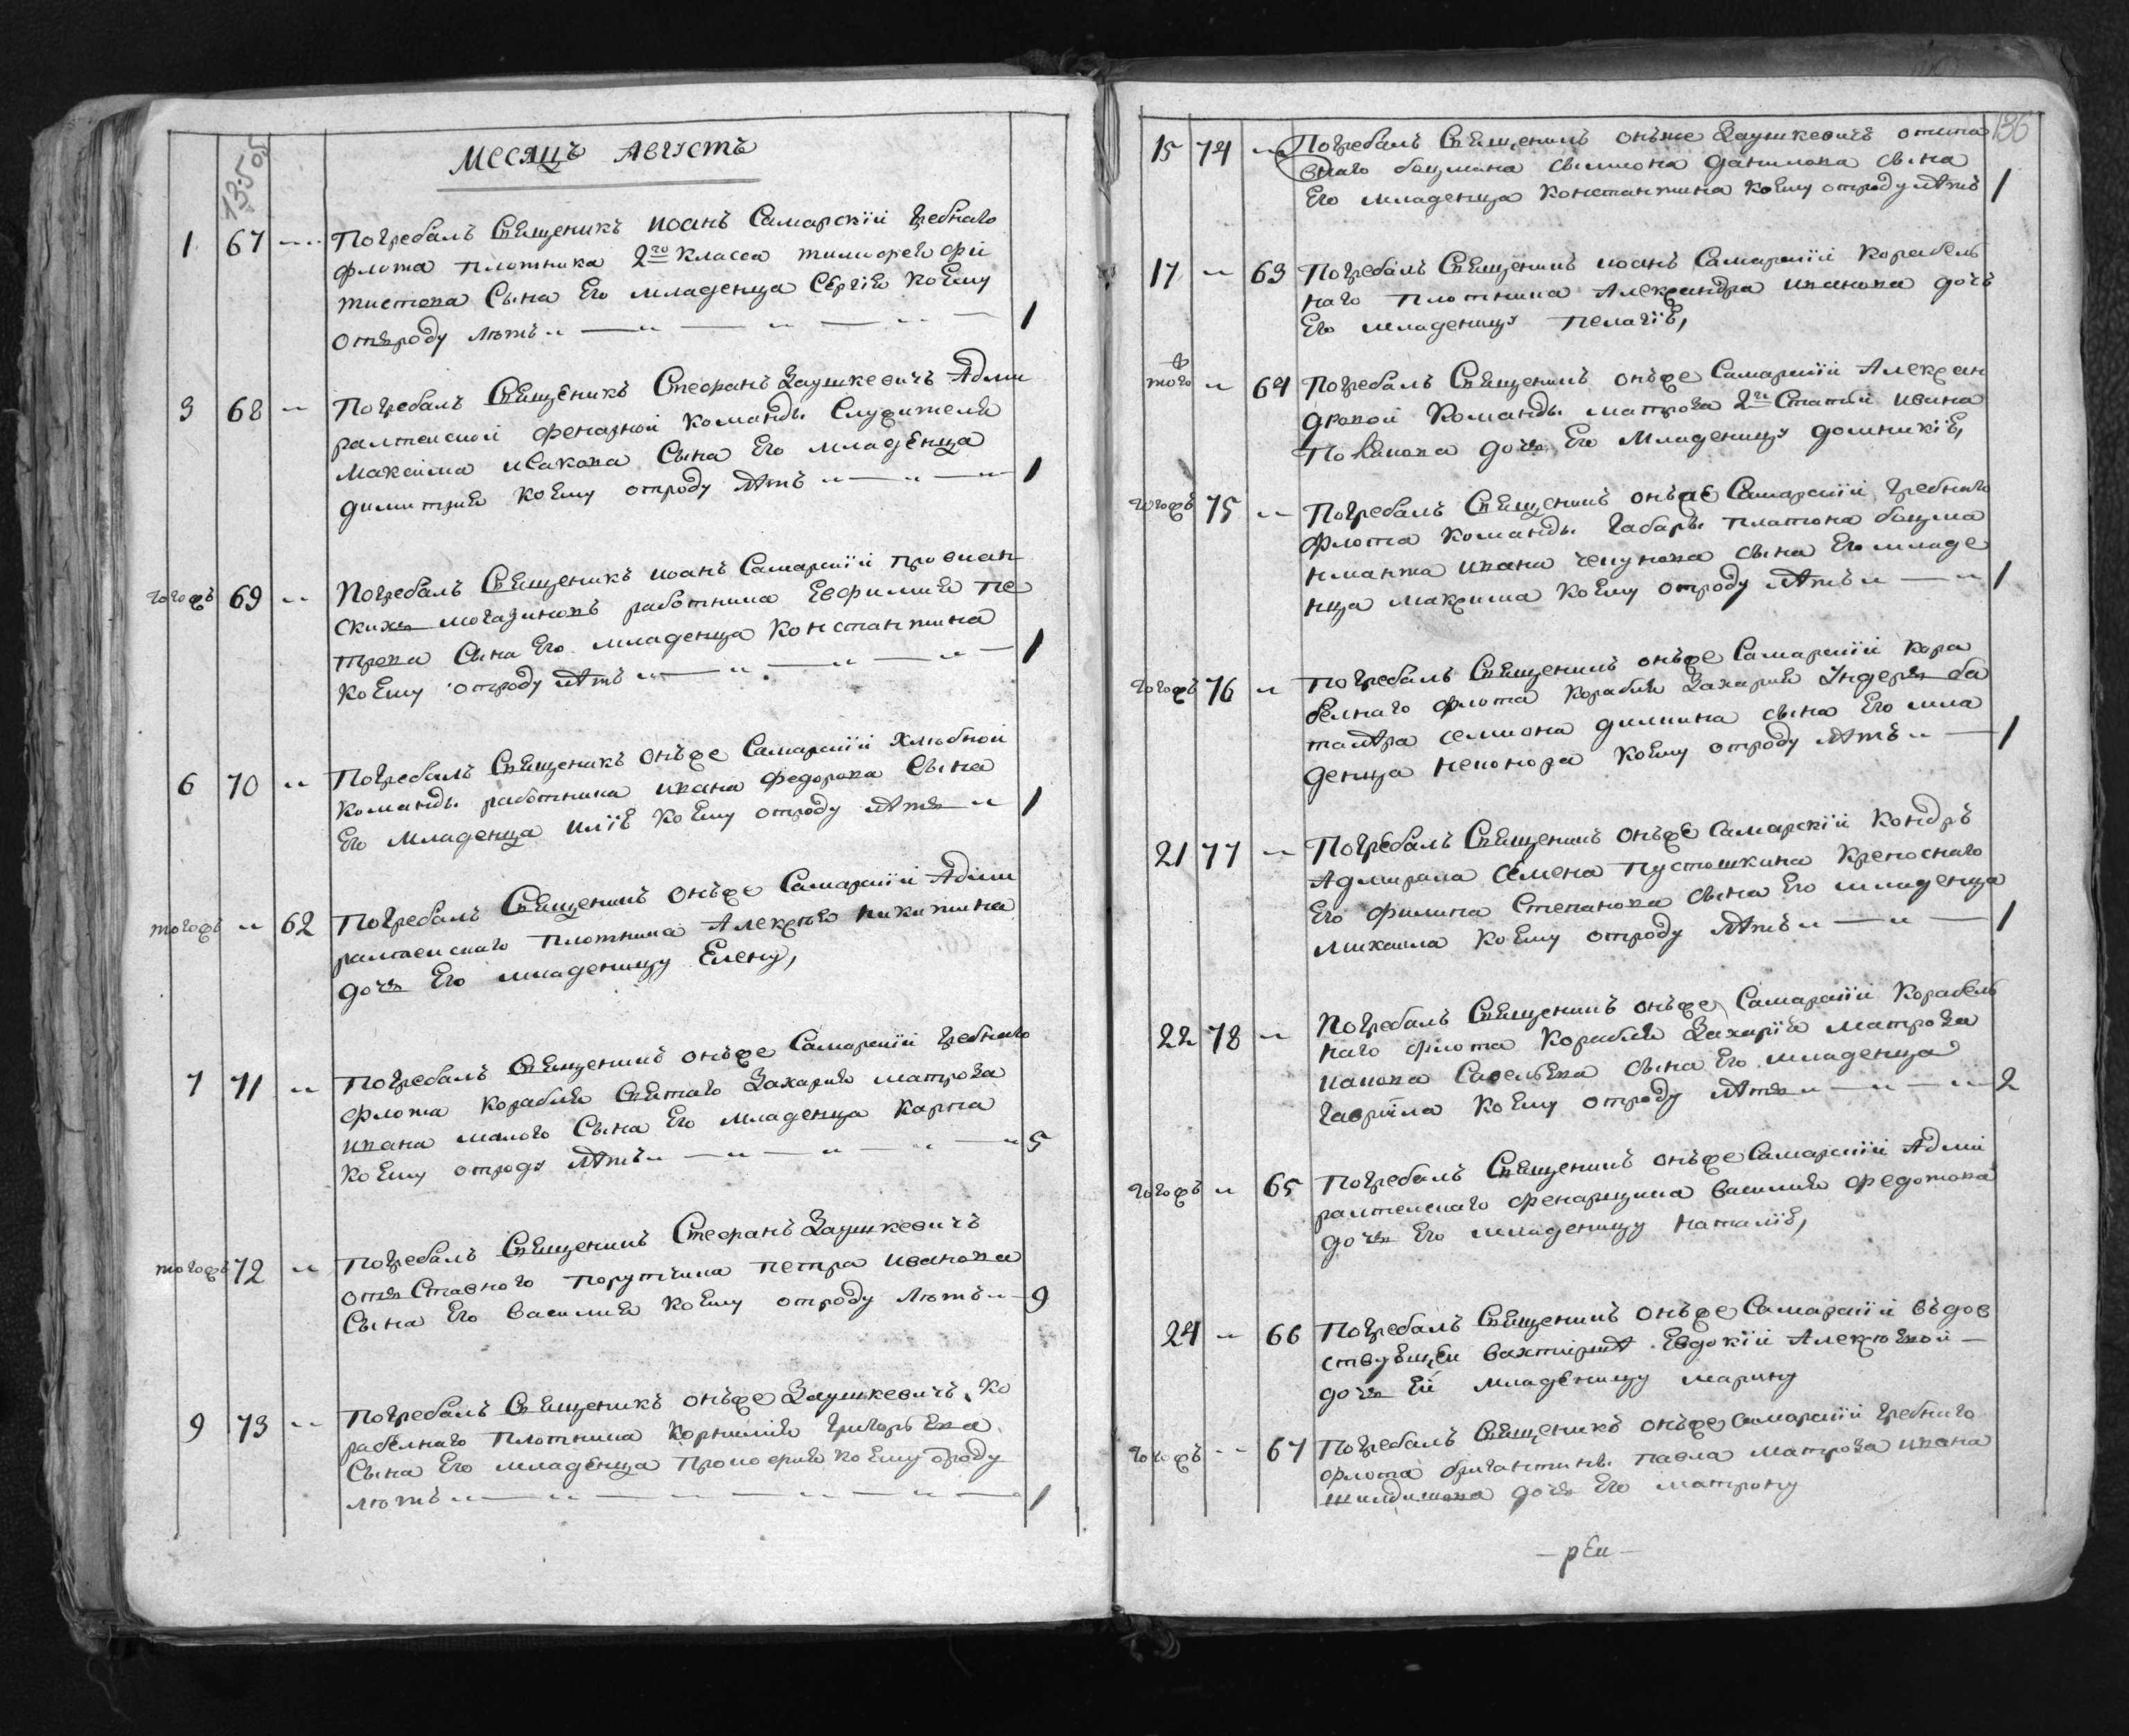 135об
Месяцъ Августъ
1 67 -- Погребалъ Священикъ Иоанъ Самарскїй гребнаго
флота плотника 2го класса тимофея фи
тистова Сына Его младенца Сергїя коему
отъроду лѣтъ 1
3 68 -- Погребалъ Священикъ Стефанъ Заушкевичъ Адми
ралтенской фенарной команды Служителя
Максима исакова Сына Его младенца
димитрия коему отроду лѣтъ 1
тогожъ 69 -- Погребалъ Священикъ иоанъ Самарскїй провиан
скихъ могазиновъ работника Евфимия пе
трова Сына Его младенца Константина
коему отроду лѣтъ 1
6 70 -- Погребалъ Священикъ онъже Самарскїй хлѣбной
команды работника ивана федорова Сына
Его младенца илїѣ коему отроду лѣтъ 1
тогожъ -- 62 Погребалъ Священикъ онъже Самарскїй Адми
ралтенскаго плотника Алексѣя никитина
дочь Его младеницу Елену,
7 71 -- Погребалъ Священикъ онъже Самарскїй гребнаго
флота корабля Святаго Захария матроза
ивана малого Сына Его младенца Карпа
коему отроду лѣтъ 5
тогожъ 72 -- Погребалъ Священикъ Стефанъ Заушкевичъ
отъставного порутчика петра иванова
Сына Его василия коему отроду лѣтъ 9
9 73 -- Погребалъ Священикъ онъже Заушкевичъ, ко
рабелнаго плотника корнилия григорьева
Сына Его младенца прокофия коему отроду
лѣтъ 1
136
15 74 -- Погребалъ Священикъ онъже Заушкевичъ отста
внаго боцмана свимиона данилова сына
Его младенца константина коему отроду лѣтъ 1
17 -- 63 Погребалъ Священикъ иоанъ Самарскїй корабель
наго плотника Александра иванова дочь
Его младеницу пелагїѣ,
тогож -- 64 Погребалъ Священикъ онъже Самарскїй Алексан
дровой команды матроза 2й Статьи ивана
дочь Его младеницу домникїѣ,
тогожъ 75 -- Погребалъ Священикъ онъже Самарскїй гребнаго
флота команды габары платона боцма
нманта ивана чепурнова сына Его младе
нца максима коему отроду лѣтъ 1
тогожъ 76 -- Погребалъ Священикъ онъже Самарскїй кора
белнаго флота корабля Захария Ундеръ ба
талѣра семиона димина сына Его мла
денца никонора коему отроду лѣтъ 1
21 77 -- Погребалъ Священикъ онъже Самарскїй кондръ
Адмирала Семена пустошкина крепоснаго
Его филипа Степанова сына Его младенца
михаила коему отроду лѣтъ 1
22 78 -- Погребалъ Священикъ онъже Самарскїй корабель
наго флота корабля Захарїя матроза
Савельева сына Его младенца
гаврїила коему отроду лѣтъ 2
тогожъ -- 65 Погребалъ Священикъ онъже Самарскїй Адми
ралтенскаго фенарщика василия федотова
дочь Его младеницу наталїѣ,
24 -- 66 Погребалъ Священикъ онъже Самарскїй въдов
ствующей вахтиршѣ Евдокїй Алексѣевой
дочь Ей младеницу марину
тогожъ -- 67 Погребалъ Священикъ онъже самарскїй гребнаго
флота бригантины павла матроза ивана
дочь Его матрону